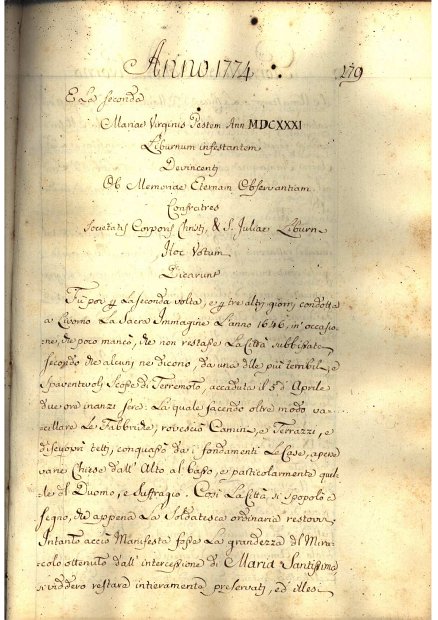 Anno 1774 279
E La seconda
Mariae Virginis Pestem Ann MDCXXXI
Liburnum infestantem
Devincenti
Ob Memoriae Eternam Observantiam
Confratres
Societatis Corporis Christi, & S. Juliae Liburn
Hoc Votum
Dicarunt
Fù poi La seconda volta, e tre altri giorni condotta
a Livorno La Sacra Immagine L'anno 1646, in occasio-
ne, che poco mancò, che non restasse La Città subbissata
secondo che alcuni ne dicono, da una delle più terribili, e
spaventevoli Scosse di Terremoto, accaduta il 5 d'Aprile
due ore inanzi sera: La quale facendo oltre modo va-
cillare Le Fabbriche, rovesciò Camini, e Terrazzi, e
discuoprì tetti, conquassò dai fondamenti Le Case, aperse
varie Chiese dall'Alto al basso, e particolarmente quel-
le del Duomo, e Suffragio. Così La Città, si spopolò a
segno, che appena La Soldatesca ordinaria restovvi,
Intanto acciò Manifesta fosse La grandezza del Mira-
colo ottenuto dall'intercessione di Maria Santissima
si viddero restare intieramente preservati, ed illesi